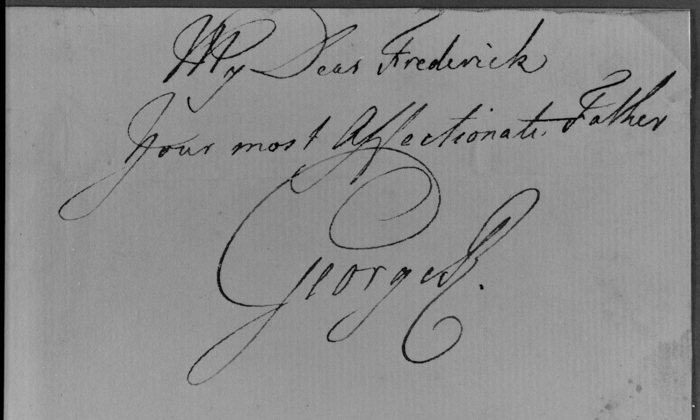 My Dear Frederick
Your most Affectionate Father
George R.